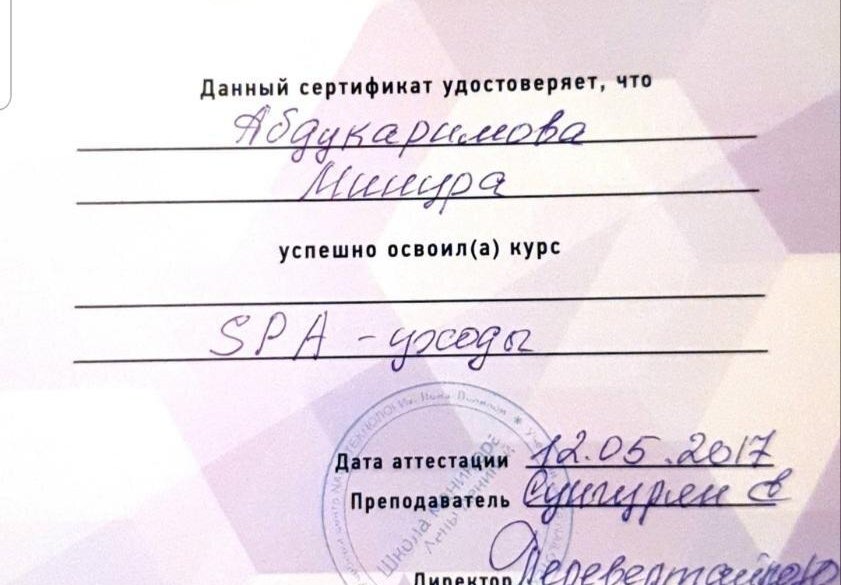 Данный сертификат удостоверяет, что
Абдукаримова
Минура
успешно освоил(а) курс
SPA - уходы
Дата аттестации 12.05.2017
Преподаватель
Школа маникюра
Лены Лениной
Директор